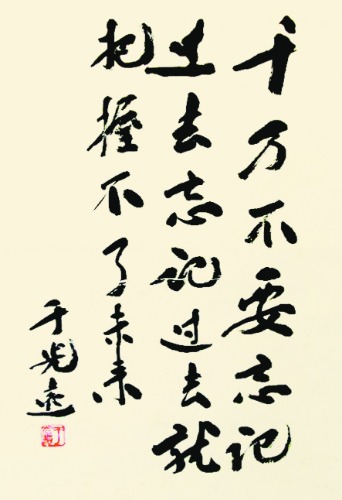 千万不要忘记
过去忘记过去就
把握不了未来
于光远